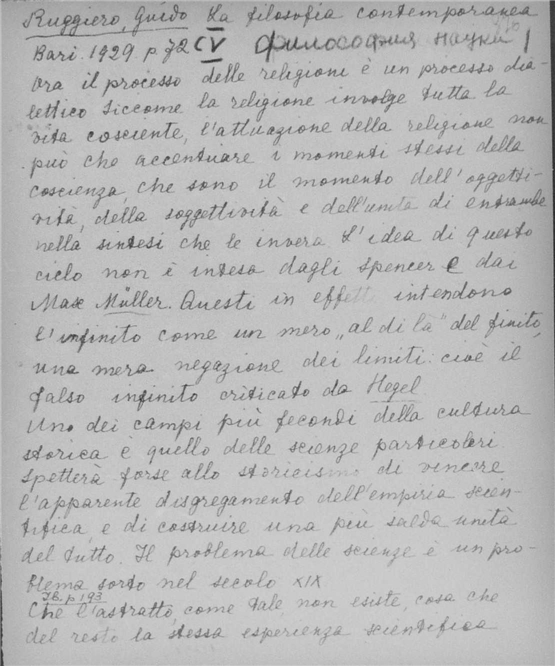 Ruggiero, Guido La filosofia contemporanea
Bari. 1929 p 72 CV философия науки 1
Ora il processo delle religioni è un processo dia-
lettico siccome la religione involge tutta la
vita cosciente, l'attuazione della religione non
può che accentuare i momenti stessi della
coscienza, che sono il momento dell'oggetti-
vità, della soggettività e dell'unità di entrambe
nella sintesi che le invera L'idea di questo
ciclo non è intesa dagli Spencer e dai
Max Müller. Questi in effetti intendono
l'infinito come un mero „al di là" del finito,
una mera negazione dei limiti: cioè il
falso infinito criticato da Hegel
Uno dei campi più fecondi della cultura
storica è quello delle scienze particolari
Spetterà forse allo storicismo di vincere
l'apparente disgregamento dell'empiria scien-
tifica, e di costruire una più salda unità
del tutto. Il problema delle scienze è un pro-
blema sorto nel secolo XIX
Ib. p 193
Che l'astratto, come tale non esiste, cosa che
del resto la stessa esperienza scientifica